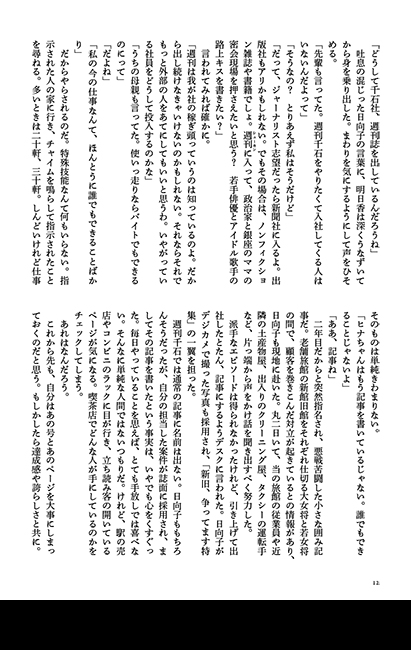 「どうして千石社、週刊誌を出しているんだろうね」
　吐息の混じった日向子の言葉に、明日香は深くうなずいて
から身を乗り出した。まわりを気にするようにして声をひそ
める。
「先輩も言ってた。週刊千石をやりたくて入社してくる人は
いないんだよって」
「そうなの？　とりあえず私はそうだけど」
「だって、ジャーナリスト志望だったら新聞社に入るよ。出
版社もアリかもしれない。でもその場合は、ノンフィクショ
ン雑誌や書籍でしょ。週刊に入って、政治家と銀座のママの
密会現場を押さえたいと思う？　若手俳優とアイドル歌手の
路上キスを書きたい？」
　言われてみれば確かに。
「週刊は我が社の稼ぎ頭っていうのは知っているのよ。だか
ら出し続けなきゃいけないのかもしれない。それならそれで
もっと外部の人をあてにしてもいいと思うわ。いやがってい
る社員をどうして投入するのかな」
「うちの母親も言ってた。使いっ走りならバイトでもできる
のにって」
「だよね」
「私の今の仕事なんて、ほんとうに誰でもできることばか
り」
　だからやらされるのだ。特殊技能なんて何もいらない。指
示された人の家に行き、チャイムを鳴らして指示されたこと
を尋ねる。多いときは二十軒、三十軒。しんどいけれど仕事
そのものは単純きわまりない。
「ヒナちゃんはもう記事を書いているじゃない。誰でもでき
ることじゃないよ」
「ああ、記事ね」
　二年目だからと突然指名され、悪戦苦闘した小さな囲み記
事だ。老舗旅館の新館旧館をそれぞれ仕切る大女将と若女将
の間で、顧客を巻きこんだ対立が起きているとの情報があり、
日向子も現地に赴いた。丸二日いて、当の旅館の従業員や近
隣の土産物屋、出入りのクリーニング屋、タクシーの運転手
など、片っ端から声をかけ話を聞き出すべく努力した。
　派手なエピソードは得られなかったけれど、引き上げて出
社したとたん、記事にするようデスクに言われた。日向子が
デジカメで撮った写真も採用され、「新旧、争ってます特
集」の一翼を担った。
　週刊千石では通常の記事に名前は出ない。日向子ももちろ
んそうだったが、自分の担当した案件が誌面に採用され、ま
してその記事を書いたという事実は、いやでも心をくすぐっ
た。毎日やっていることを思えば、とても手放しでは喜べな
い。そんなに単純な人間ではないつもりだ。けれど、駅の売
店やコンビニのラックに目が行き、立ち読み客の開いている
ページが気になる。喫茶店でどんな人が手にしているのかを
チェックしてしまう。
　あれはなんだろう。
　これから先も、自分はあの号とあのページを大事にしまっ
ておくのだと思う。もしかしたら達成感や誇らしさと共に。
12